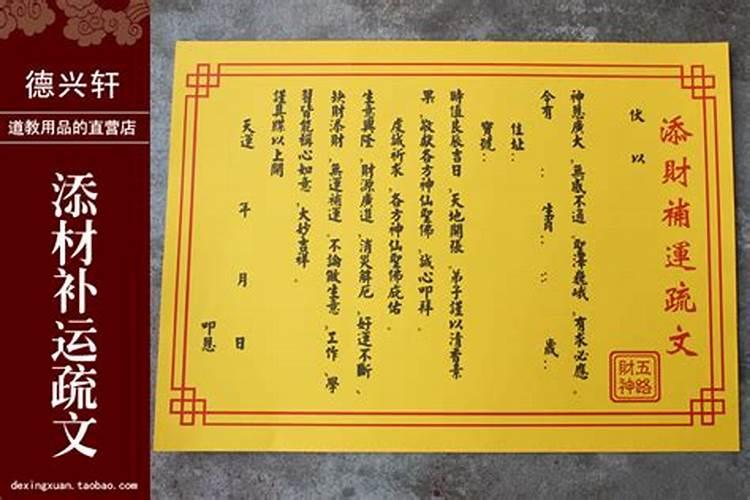 德兴轩
道教用品的直营店
添材补运疏文
dexingxuan.taobao.com
添財補運疏文
五路
財神
伏以
神恩廣大，無感不通，聖澤巍峨，有求必應。
今有：生肖：：歲：
住址：
寶號：
時值良辰吉日，天地開張，弟子謹以清香素
果，敬献各方神仙聖佛，誠心叩拜。
虔誠祈求，各方神仙聖佛庇佑。
生意興隆，財源廣進，消災解厄，好運不斷、
缺財添財，無運補運，不論做生意，工作，學
習皆能稱心如意，大妙吉祥。
謹具牒以上聞
天運 年 月 日
叩恩